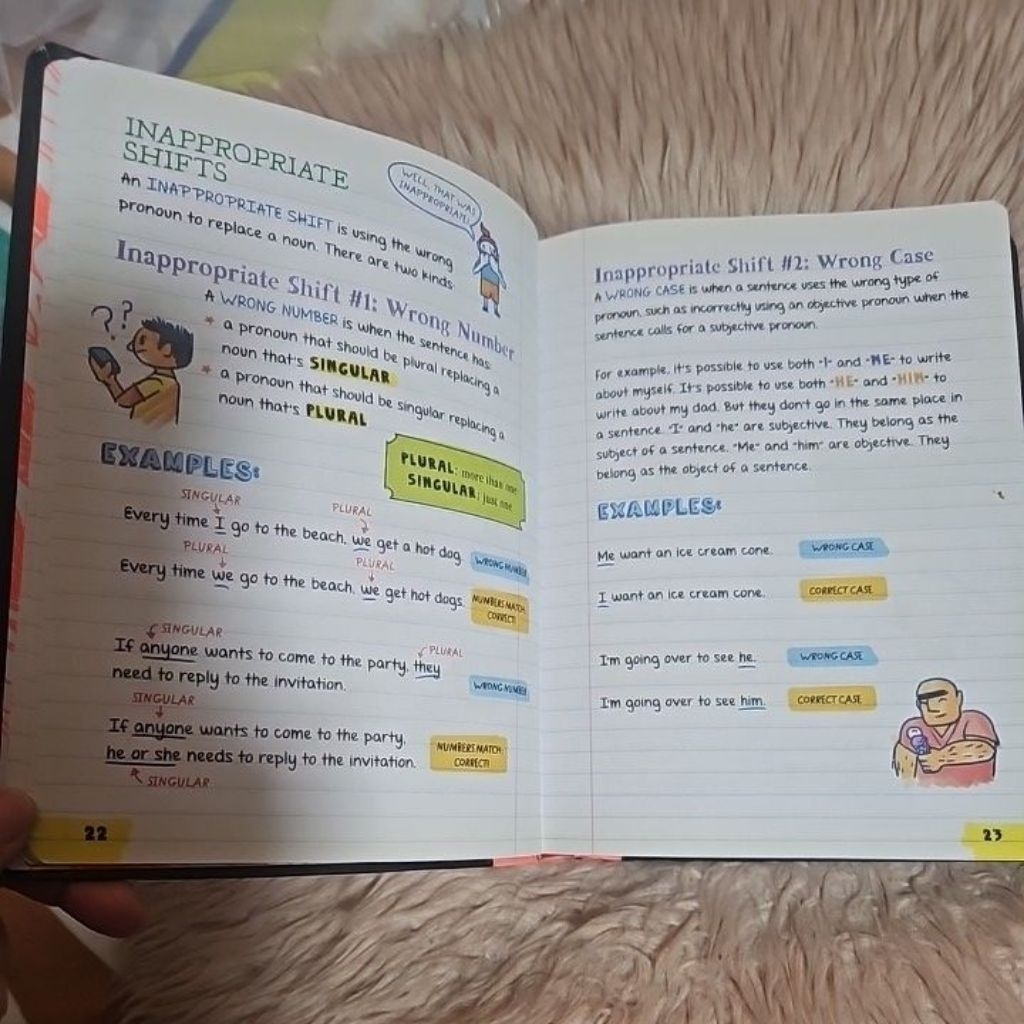 INAPPROPRIATE
SHIFTS
WELL, THAT WAS
INAPPROPRIATE!
An INAPPROPRIATE SHIFT is using the wrong
pronoun to replace a noun. There are two kinds
Inappropriate Shift #1: Wrong Number
??
A WRONG NUMBER is when the sentence has:
* a pronoun that should be plural replacing a
noun that's SINGULAR
* a pronoun that should be singular replacing a
noun that's PLURAL
PLURAL: more than one
SINGULAR: just one
EXAMPLES:
SINGULAR PLURAL
Every time I go to the beach, we get a hot dog. WRONG NUMBER
PLURAL PLURAL
Every time we go to the beach, we get hot dogs. NUMBERS MATCH:
CORRECT!
SINGULAR
If anyone wants to come to the party, they PLURAL
need to reply to the invitation. WRONG NUMBER
SINGULAR
If anyone wants to come to the party,
he or she needs to reply to the invitation. NUMBERS MATCH:
CORRECT!
SINGULAR
22
Inappropriate Shift #2: Wrong Case
A WRONG CASE is when a sentence uses the wrong type of
pronoun, such as incorrectly using an objective pronoun when the
sentence calls for a subjective pronoun.
For example, it's possible to use both "I" and "ME" to write
about myself. It's possible to use both "HE" and "HIM" to
write about my dad. But they don't go in the same place in
a sentence. "I" and "he" are subjective. They belong as the
subject of a sentence. "Me" and "him" are objective. They
belong as the object of a sentence.
EXAMPLES:
Me want an ice cream cone. WRONG CASE
I want an ice cream cone. CORRECT CASE
I'm going over to see he. WRONG CASE
I'm going over to see him. CORRECT CASE
23